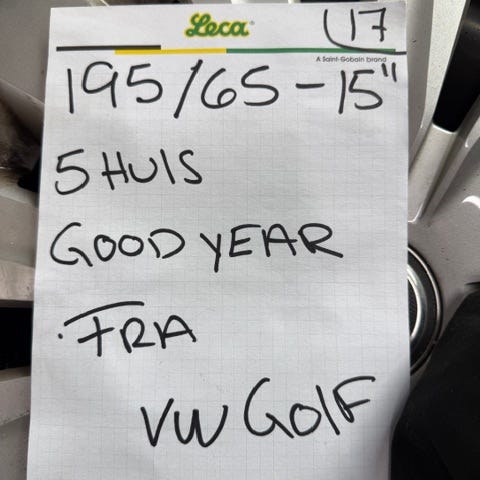 Leca®
17
A Saint-Gobain brand
195/65-15"
5 HULS
GOODYEAR
·FRA
VW GOLF